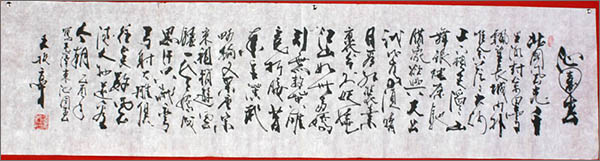 北国风光千
里冰封万里雪
飘望长城内外
惟余莽莽大河
上下顿失滔滔山
舞银蛇原驰
蜡象欲与天公
试比高须晴
日看红装素
裹分外妖娆
江山如此多娇
引无数英雄
竞折腰惜
秦皇汉武
略输文采唐宗
宋祖稍逊风骚
一代天骄成
吉思汗只识弯
弓射大雕俱
往矣数风
流人物还看
今朝